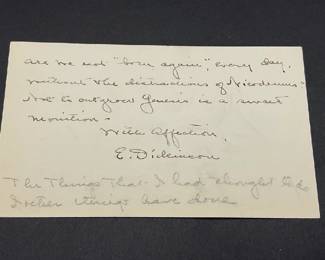 are we not "born again", every day,
without the distractions of Nicodemus -
Not to outgrow Genesis is a sweet
monition -
With affection,
E. Dickinson
The Things that I had thought to do
things have done